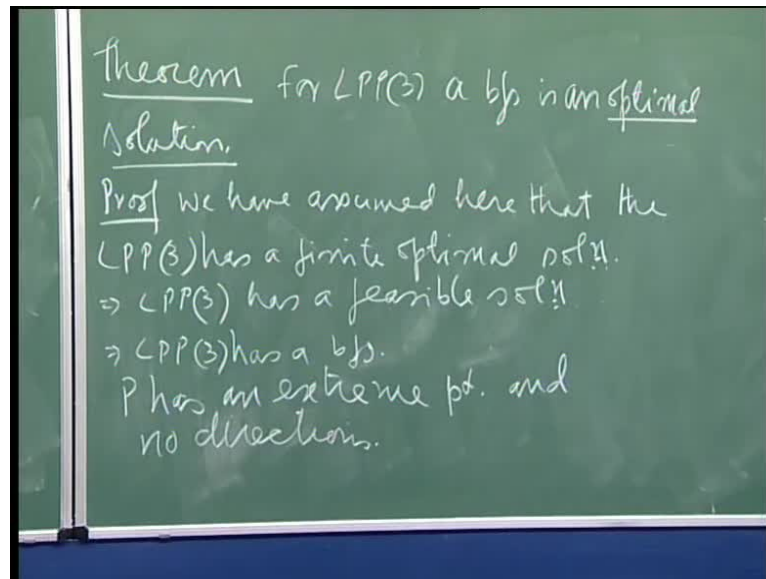 Theorem for LPP(3) a bfs is an optimal
solution.
Proof we have assumed here that the
LPP(3) has a finite optimal soln.
⇒ LPP(3) has a feasible soln
⇒ LPP(3) has a bfs.
P has an extreme pt. and
no directions.